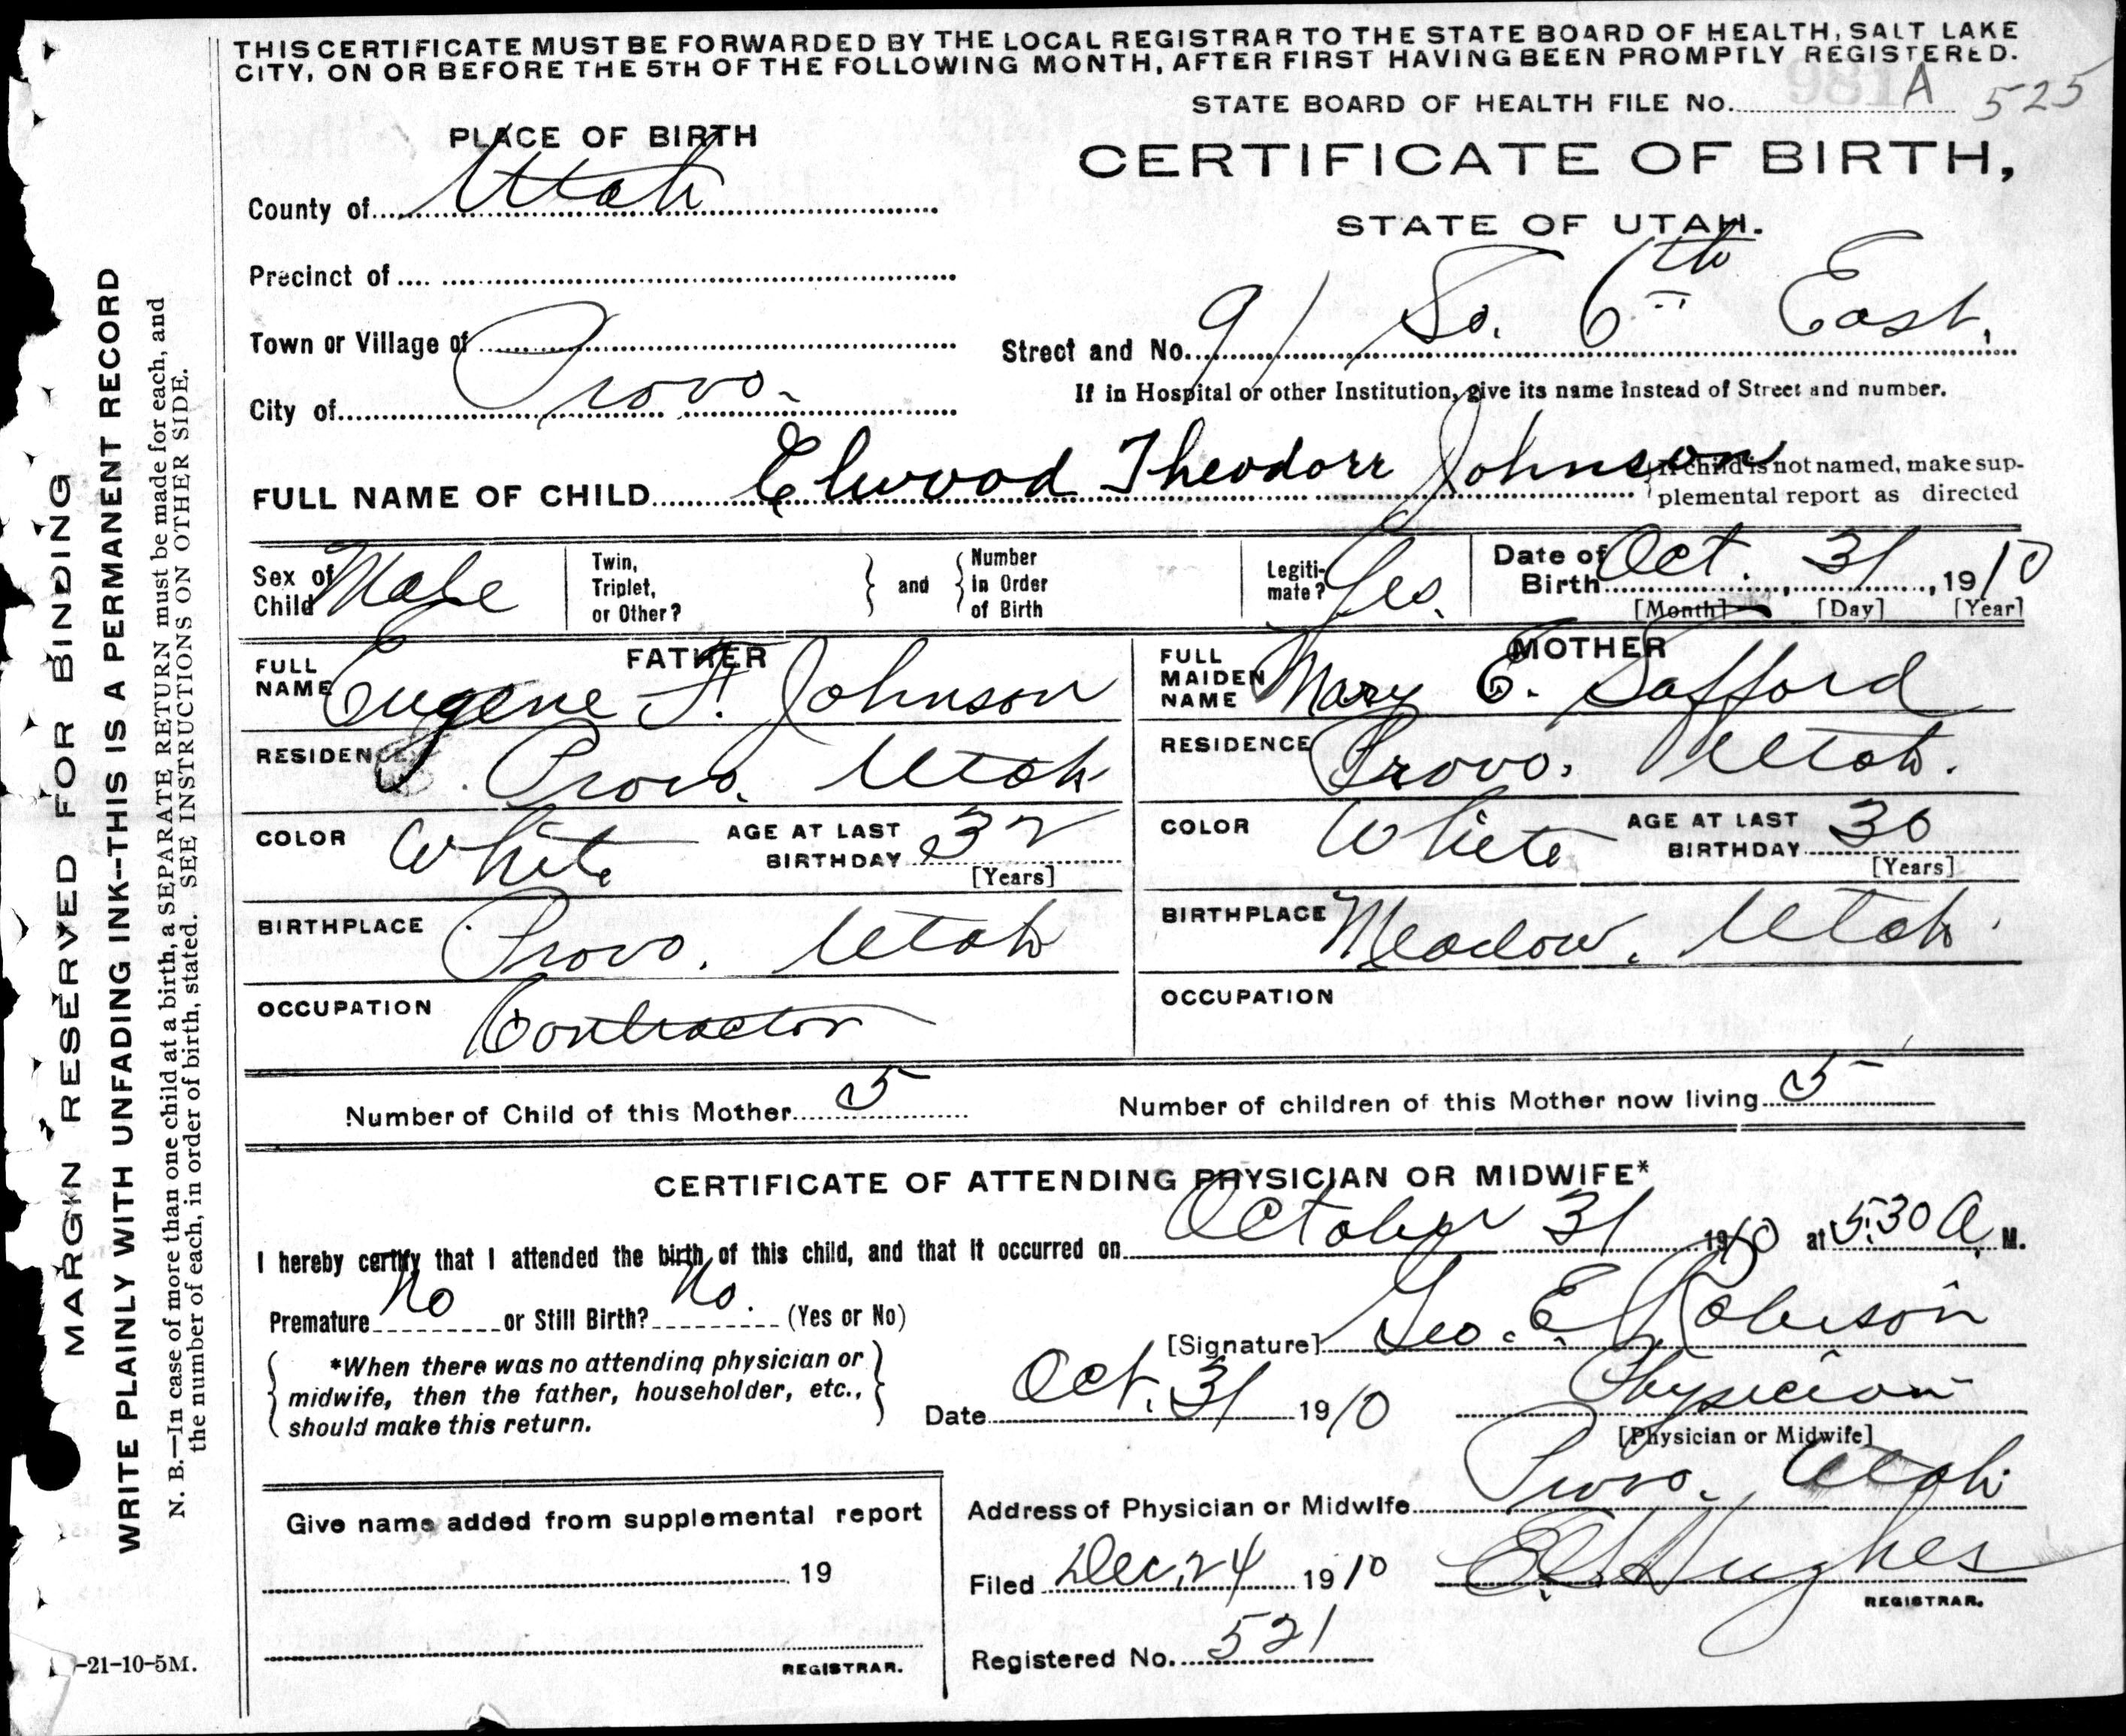 THIS CERTIFICATE MUST BE FORWARDED BY THE LOCAL REGISTRAR TO THE STATE BOARD OF HEALTH, SALT LAKE
CITY, ON OR BEFORE THE 5TH OF THE FOLLOWING MONTH, AFTER FIRST HAVING BEEN PROMPTLY REGISTERED.
STATE BOARD OF HEALTH FILE No. A 525
PLACE OF BIRTH
CERTIFICATE OF BIRTH,
STATE OF UTAH.
County of Utah
Precinct of
Town or Village of
Street and No. 91 So. 6th East.
If in Hospital or other Institution, give its name instead of Street and number.
City of Provo.
FULL NAME OF CHILD Elwood Theodore Johnson
If child is not named, make sup-
plemental report as directed
Sex of Child Male
Twin, Triplet, or Other?
and
Number in Order of Birth
Legiti-mate? Yes.
Date of Birth Oct. 31, 1910
[Month] [Day] [Year]
FATHER
FULL NAME Eugene F. Johnson
RESIDENCE Provo. Utah
COLOR White AGE AT LAST BIRTHDAY 32
[Years]
BIRTHPLACE Provo. Utah
OCCUPATION Contractor
MOTHER
FULL MAIDEN NAME Mary E. Safford
RESIDENCE Provo. Utah.
COLOR White AGE AT LAST BIRTHDAY 30
[Years]
BIRTHPLACE Meadow. Utah
OCCUPATION
Number of Child of this Mother 5 Number of children of this Mother now living 5
CERTIFICATE OF ATTENDING PHYSICIAN OR MIDWIFE*
I hereby certify that I attended the birth of this child, and that it occurred on October 31 1910 at 5:30 A. M.
Premature No or Still Birth? No. (Yes or No)
[Signature] Geo. E. Robison
*When there was no attending physician or
midwife, then the father, householder, etc.,
should make this return.
Date Oct. 31 1910
Physician
[Physician or Midwife]
Address of Physician or Midwife Provo. Utah
Give name added from supplemental report
19
REGISTRAR.
Filed Dec. 24 1910 Hughes
REGISTRAR.
Registered No. 521
-21-10-5M.
MARGIN RESERVED FOR BINDING
WRITE PLAINLY WITH UNFADING INK--THIS IS A PERMANENT RECORD
N. B.—In case of more than one child at a birth, a SEPARATE RETURN must be made for each, and
the number of each, in order of birth, stated. SEE INSTRUCTIONS ON OTHER SIDE.